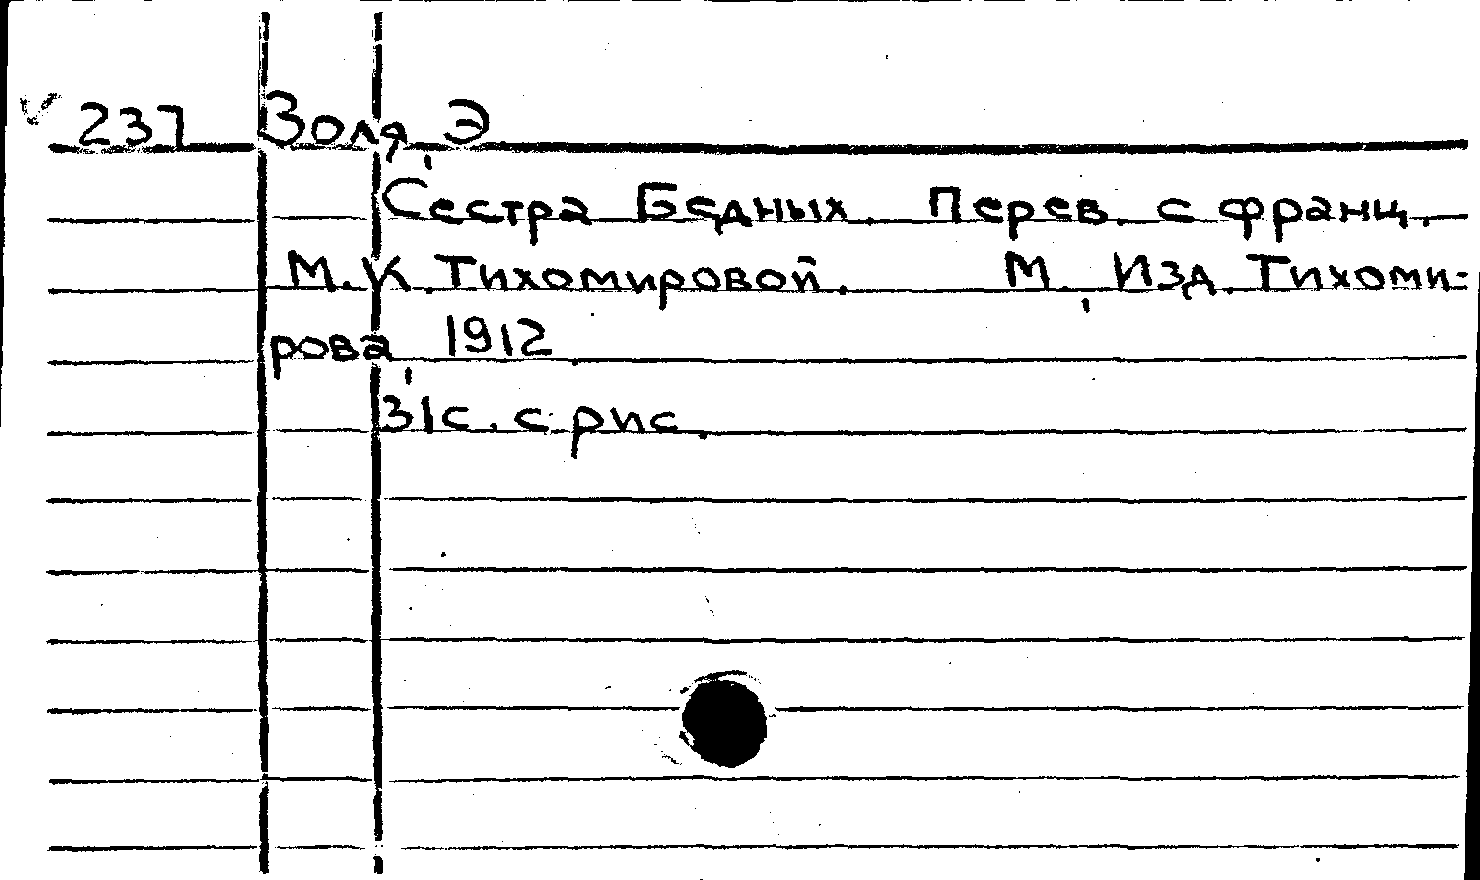 ✓ 237 Золя, Э
Сестра Бедных. Перев. с франц.
М.К. Тихомировой. М., Изд. Тихоми-
рова, 1912
31с. с рис.